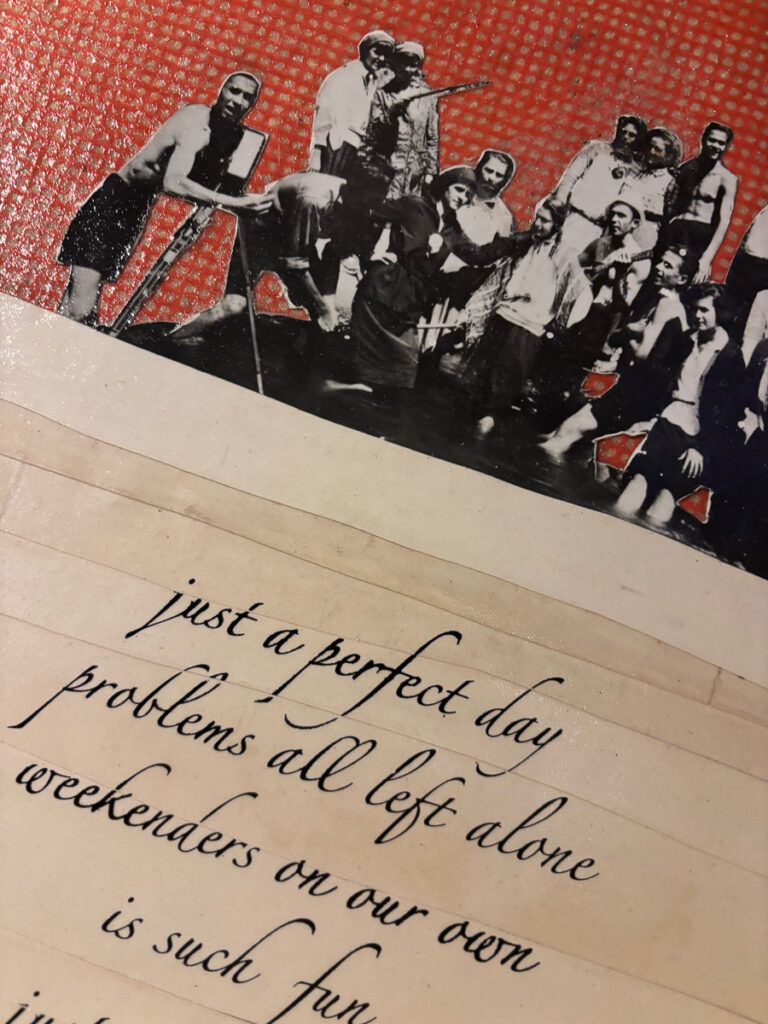 just a perfect day
problems all left alone
weekenders on our own
is such fun